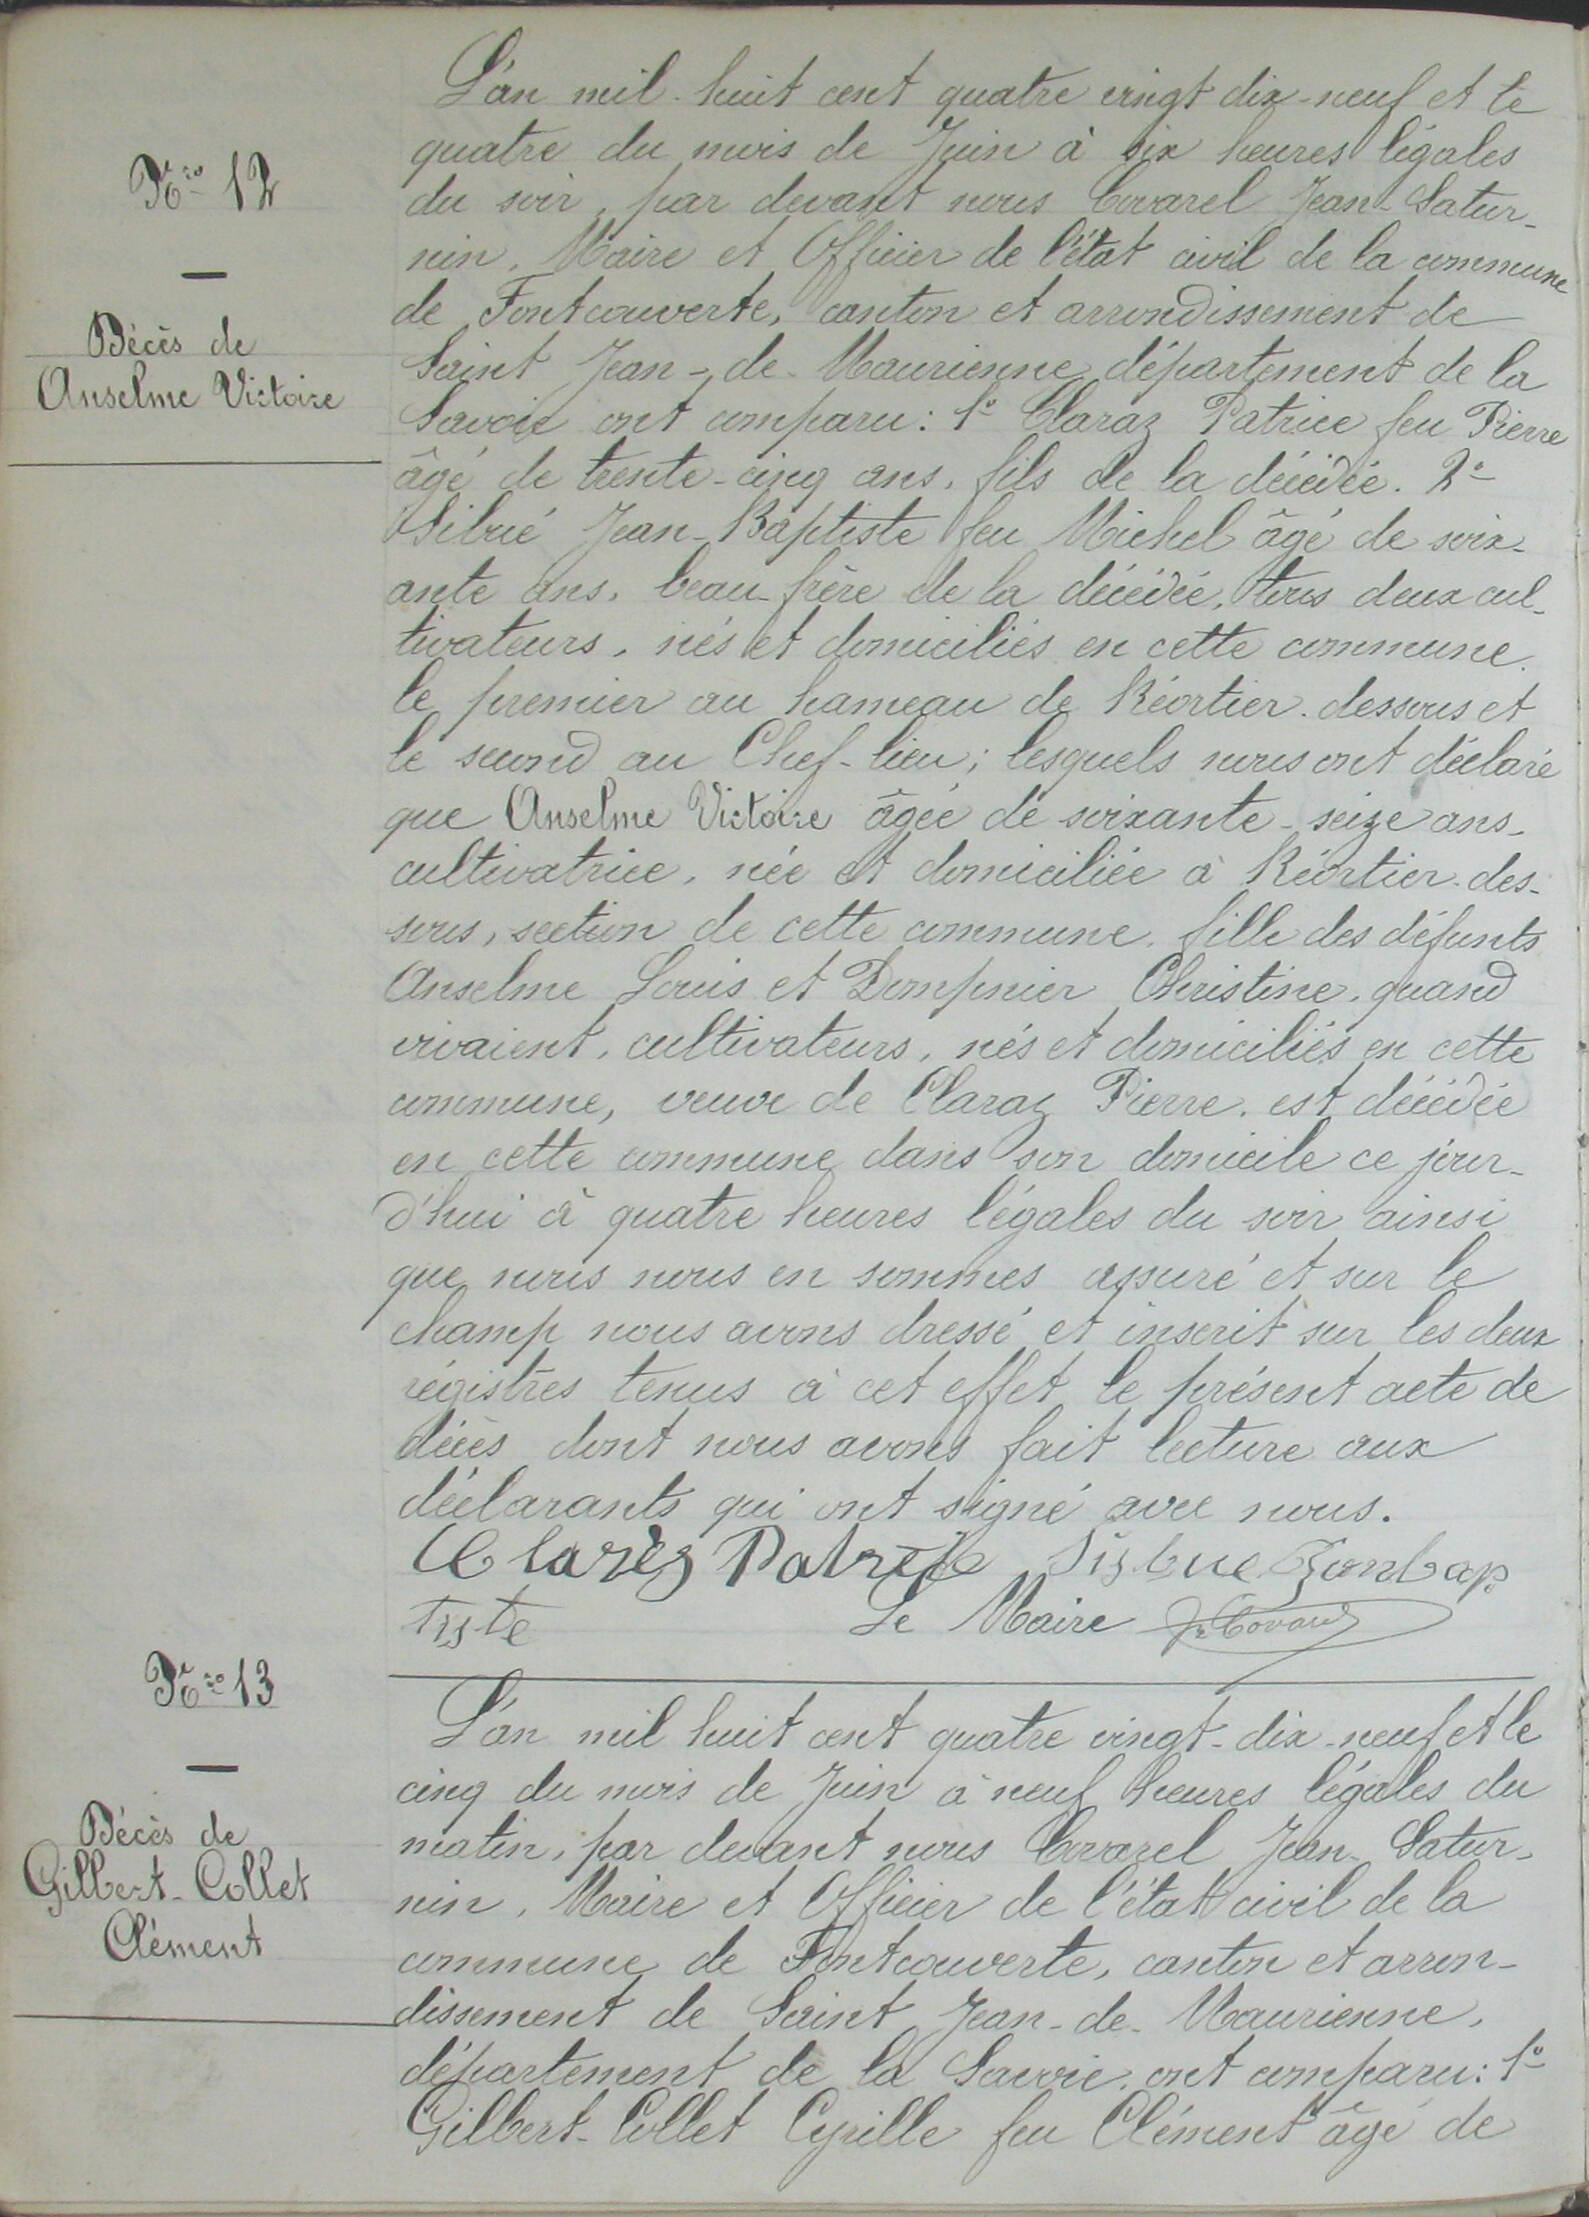 Nro 12
—
Décès de
Anselme Victoire
L'an mil huit cent quatre vingt dix-neuf et le
quatre du mois de Juin à six heures légales
du soir, par devant nous Covarel Jean-Satur-
nin, Maire et Officier de l'état civil de la commune
de Fontcouverte, canton et arrondissement de
Saint Jean-de-Maurienne département de la
Savoie ont comparu : 1° Claraz Patrice feu Pierre
âgé de trente-cinq ans, fils de la décédée. 2°
Jean-Baptiste feu Michel âgé de soix-
ante ans, beau-frère de la décédée, tous deux cul-
tivateurs, nés et domiciliés en cette commune.
le premier au hameau de Réortier-dessous et
le second au Chef-lieu ; lesquels nous ont déclaré
que Anselme Victoire âgée de soixante-seize ans,
cultivatrice, née et domiciliée à Réortier-des-
sous, section de cette commune, fille des défunts
Anselme Louis et Dompnier Christine, quand
vivaient, cultivateurs, nés et domiciliés en cette
commune, veuve de Claraz Pierre, est décédée
en cette commune dans son domicile ce jour-
d'hui à quatre heures légales du soir ainsi
que nous nous en sommes assuré et sur le
champ nous avons dressé et inscrit sur les deux
régistres tenus à cet effet le présent acte de
décès dont nous avons fait lecture aux
déclarants qui ont signé avec nous.
Patrice
tiste Le Maire J. Covarel
Nro 13
—
Décès de
Gilbert-Collet
Clément
L'an mil huit cent quatre vingt-dix-neuf et le
cinq du mois de Juin à neuf heures légales du
matin, par devant nous Covarel Jean-Satur-
nin, Maire et Officier de l'état civil de la
commune de Fontcouverte, canton et arron-
dissement de Saint Jean-de-Maurienne,
département de la Savoie, ont comparu : 1°
Gilbert-Collet Cyrille feu Clément âgé de